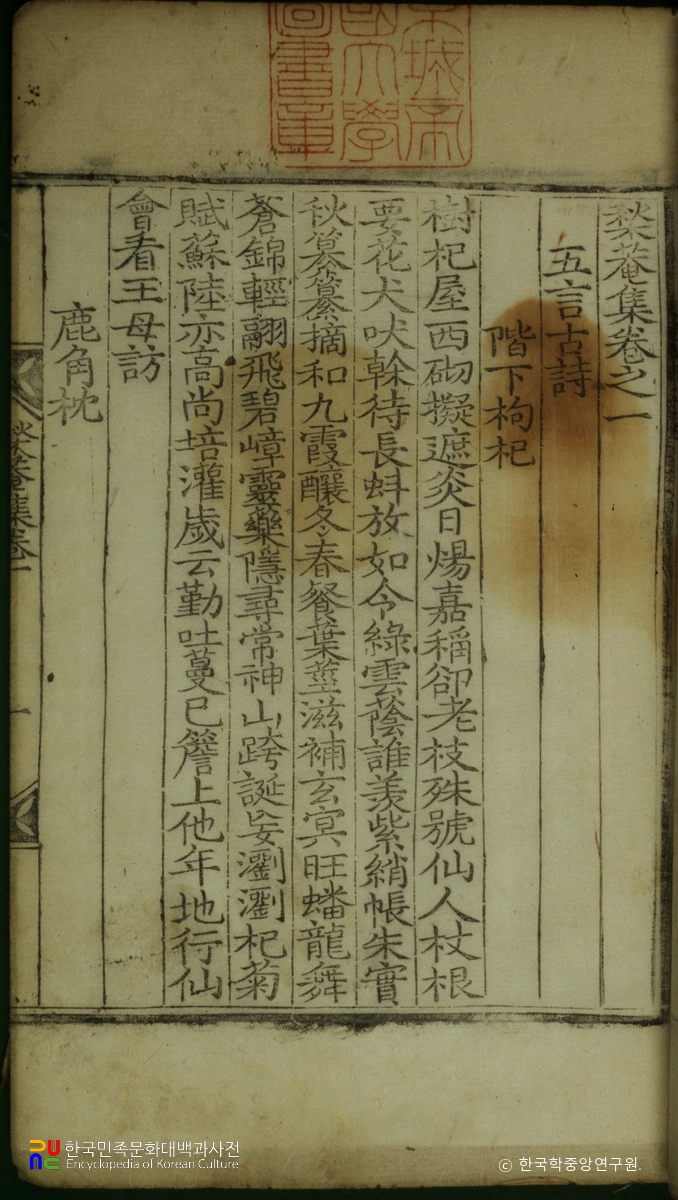 京城帝
國大學
圖書章
棃菴集卷之一
五言古詩
階下枸杞
樹杞屋西砌擬遮炎日煬嘉稱卻老枝殊號仙人杖根
要花犬吠榦待長蚪放如今綠雲蔭誰羨紫綃帳朱實
秋纂纂摘和九霞釀冬春餐葉莖滋補玄冥旺蟠龍舞
蒼錦輕翮飛碧嶂靈藥隱尋常神山跨誕妄瀏瀏杞菊
賦蘇陸亦高尚培灌歲云勤吐蔓已簷上他年地行仙
會看王母訪
鹿角枕
棃菴集卷一
一
한국민족문화대백과사전
Encyclopedia of Korean Culture
© 한국학중앙연구원.